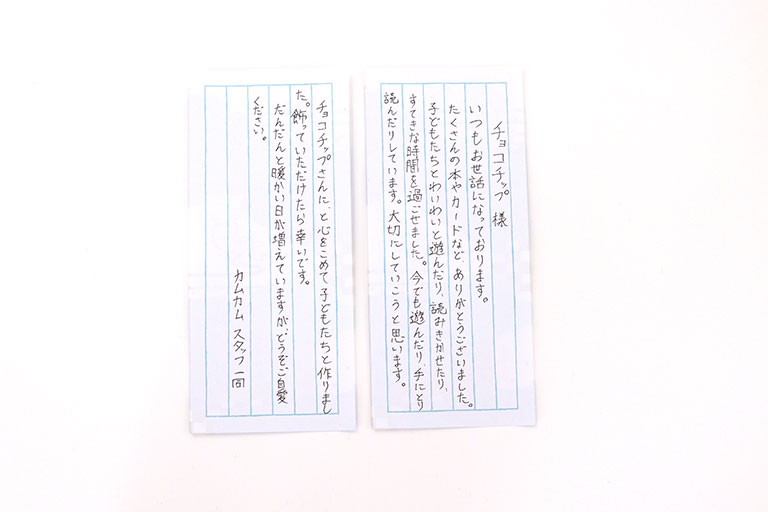 チョコチップ 様
いつもお世話になっております。
たくさんの本やカードなど、ありがとうございました。
子どもたちとわいわいと遊んだり、読みきかせたり、
すてきな時間を過ごせました。今でも遊んだり、手にとり
読んだりしています。大切にしていこうと思います。
チョコチップさんに、と心をこめて子どもたちと作りまし
た。飾っていただけたら幸いです。
だんだんと暖かい日が増えていますが、どうぞご自愛
ください。
カムカム スタッフ一同